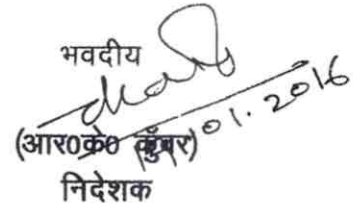 भवदीय
01.2016
(आर0के0 कुँवर)
निदेशक